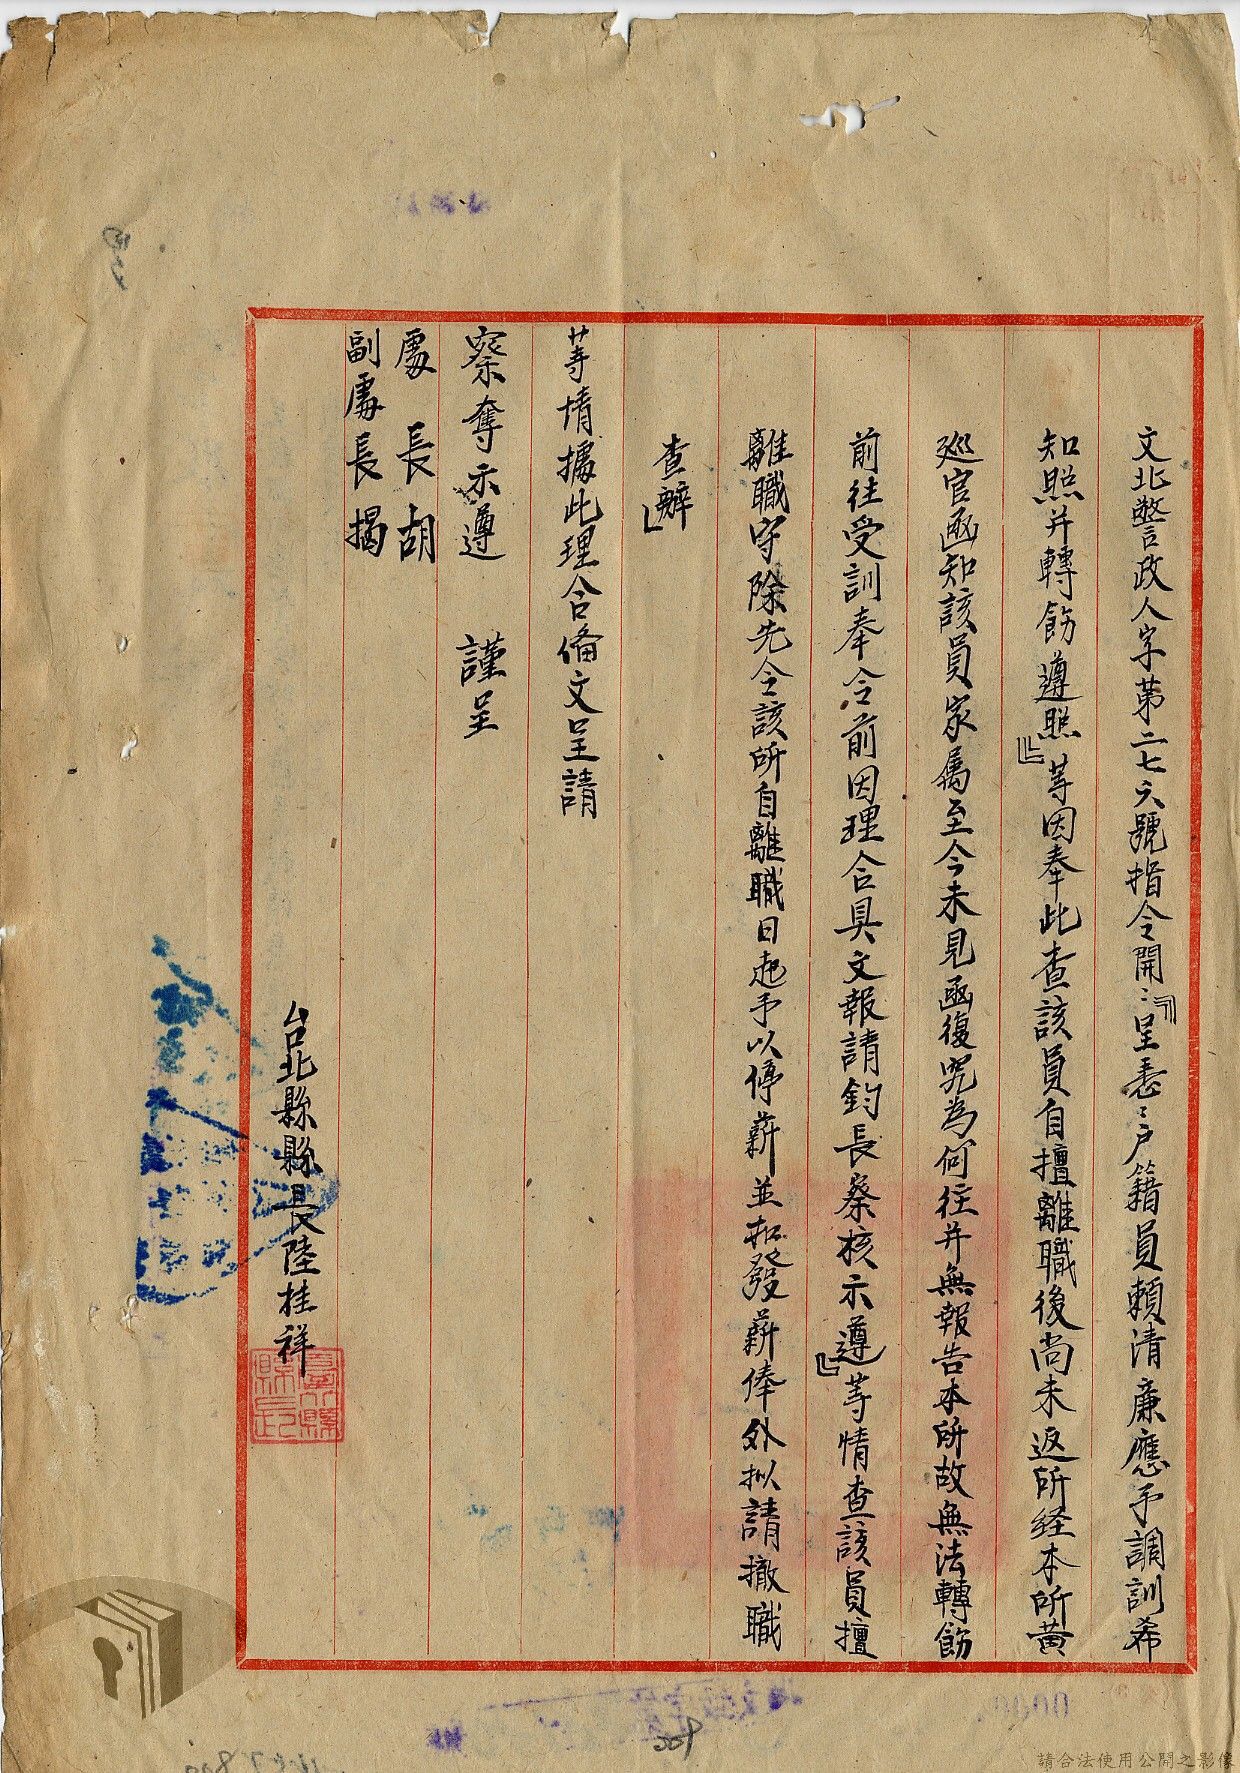 文北警政人字第二七六號指令開：『呈悉：戶籍員賴清廉應予調訓希
知照并轉飭遵照』等因奉此查該員自擅離職後尚未返所経本所黃
巡官函知該員家屬至今未見函復究為何往并無報告本所故無法轉飭
前往受訓奉令前因理合具文報請鈞長察核示遵』等情查該員擅
離職守除先令該所自離職日起予以停薪並扣發薪俸外拟請撤職
查辦』
等情據此理合備文呈請
察奪示遵　謹呈
處長胡
副處長揭
台北縣縣長陸桂祥
臺北縣縣長
請合法使用公開之影像